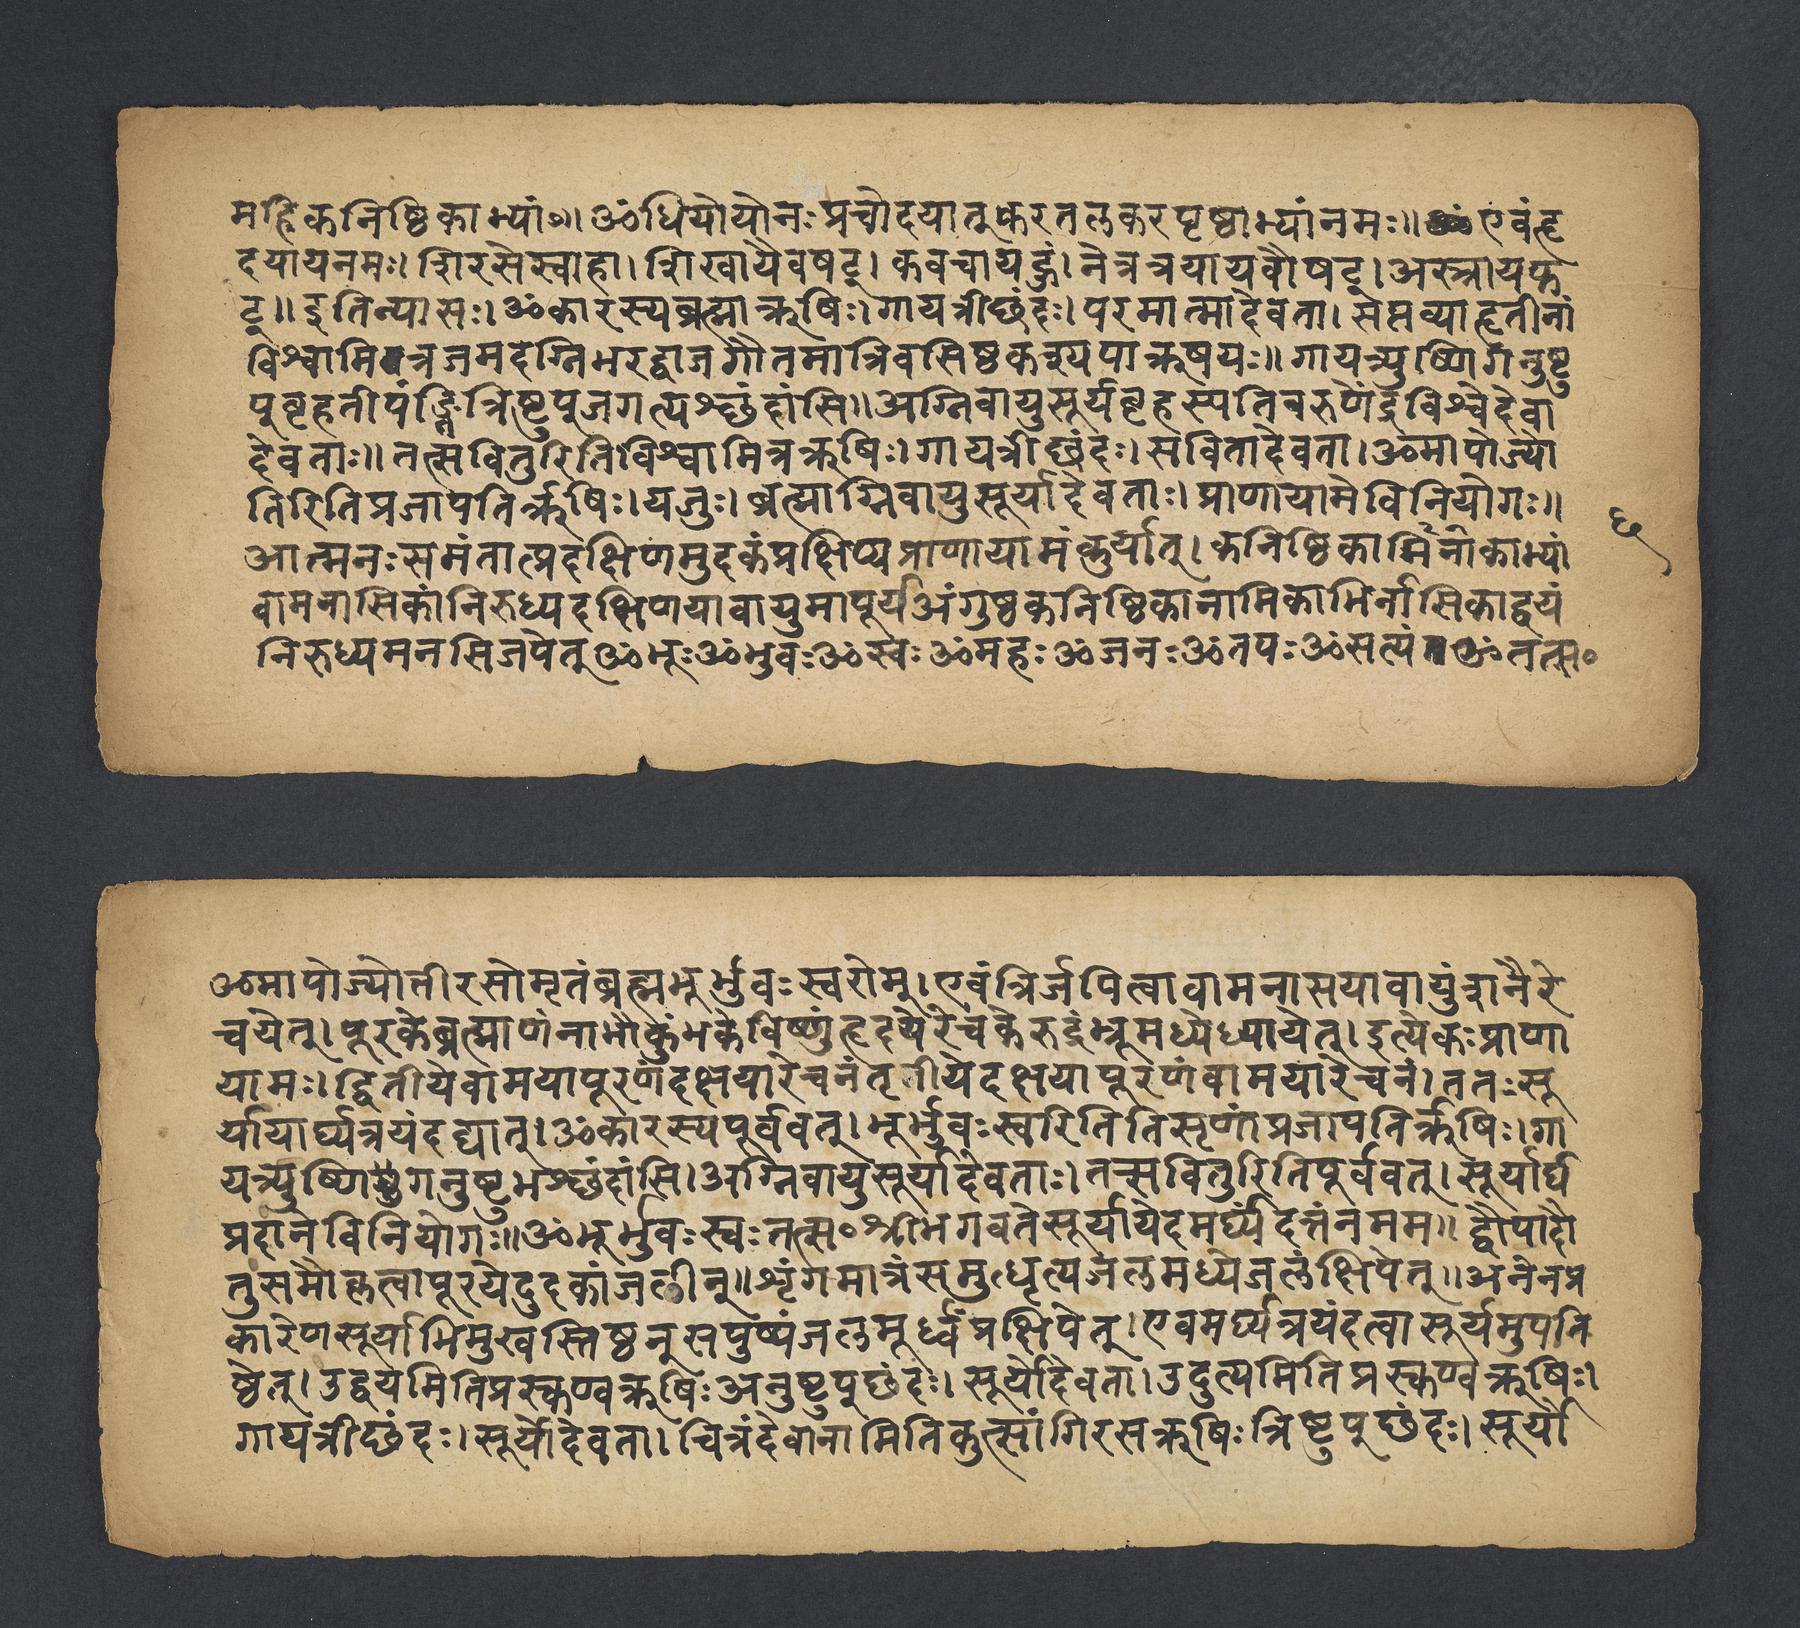 महिकनिष्ठिकाभ्यां०॥ ॐधियोयोनःप्रचोदयात्करतलकरपृष्ठाभ्यांनमः॥ एवंहृ
दयायनमः। शिरसेस्वाहा। शिखायैवषट्। कवचायहुं। नेत्रत्रयायवौषट्। अस्त्रायफ
ट्॥ इतिन्यासः। ॐकारस्यब्रह्माऋषिः। गायत्रीछंदः। परमात्मादेवता। सप्तव्याहृतीनां
विश्वामित्रजमदग्निभरद्वाजगौतमात्रिवसिष्ठकश्यपाऋषयः॥ गायत्र्युष्णिगनुष्टु
प्बृहतीपंङ्क्तित्रिष्टुप्जगत्यश्छंदांसि॥ अग्निवायुसूर्यबृहस्पतिवरुणेंद्रविश्वेदेवा
देवताः॥ तत्सवितुरितिविश्वामित्रऋषिः। गायत्रीछंदः। सवितादेवता। ॐमापोज्यो
तिरितिप्रजापतिर्ऋषिः। यजुः। ब्रह्माग्निवायुसूर्यादेवताः। प्राणायामेविनियोगः॥
आत्मनःसमंतात्प्रदक्षिणमुदकंप्रक्षिप्यप्राणायामंकुर्यात्। कनिष्ठिकानामिकाभ्यां
६
वामनासिकांनिरुध्यदक्षिणयावायुमापूर्यअंगुष्ठकनिष्ठिकानामिकाभिर्नासिकाद्वयं
निरुध्यमनसिजपेत् ॐभूःॐभुवःॐस्वःॐमहःॐजनःॐतपःॐसत्यं ॐतत्स०
ॐमापोज्योतीरसोमृतंब्रह्मभूर्भुवःस्वरोम्। एवंत्रिर्जपित्वावामनासयावायुंशनैरे
चयेत्। पूरकेब्रह्माणंनाभौकुंभकेविष्णुंहृदयेरेचकेरुद्रंभ्रूमध्येध्यायेत्। इत्येकःप्राणा
यामः। द्वितीयेवामयापूरणंदक्षयारेचनंतृतीयेदक्षयापूरणंवामयारेचनं। ततःसू
र्यायार्घ्यत्रयंदद्यात्। ॐकारस्यपूर्ववत्। भूर्भुवःस्वरितितिसृणांप्रजापतिर्ऋषिः। गा
यत्र्युष्णिगनुष्टुभश्छंदांसि। अग्निवायुसूर्यादेवताः। तत्सवितुरितिपूर्ववत्। सूर्यार्घ्य
प्रदानेविनियोगः॥ ॐभूर्भुवःस्वःतत्स०श्रीभगवतेसूर्यायेदमर्घ्यंदत्तंनमम॥ द्वौपादौ
तुसमौकृत्वापूरयेदुदकांजलीन्॥ शृंगमात्रंसमुद्धृत्यजलमध्येजलंक्षिपेत्॥ अनेनप्र
कारेणसूर्याभिमुखस्तिष्ठन्सपुष्पंजलमूर्ध्वंप्रक्षिपेत्। एवमर्घ्यत्रयंदत्वासूर्यमुपति
ष्ठेत्। उद्वयमितिप्रस्कण्वऋषिःअनुष्टुप्छंदः। सूर्योदेवता। उदुत्यमितिप्रस्कण्वऋषिः।
गायत्रीछंदः। सूर्योदेवता। चित्रंदेवानामितिकुत्सांगिरसऋषिःत्रिष्टुप्छंदः। सूर्यो